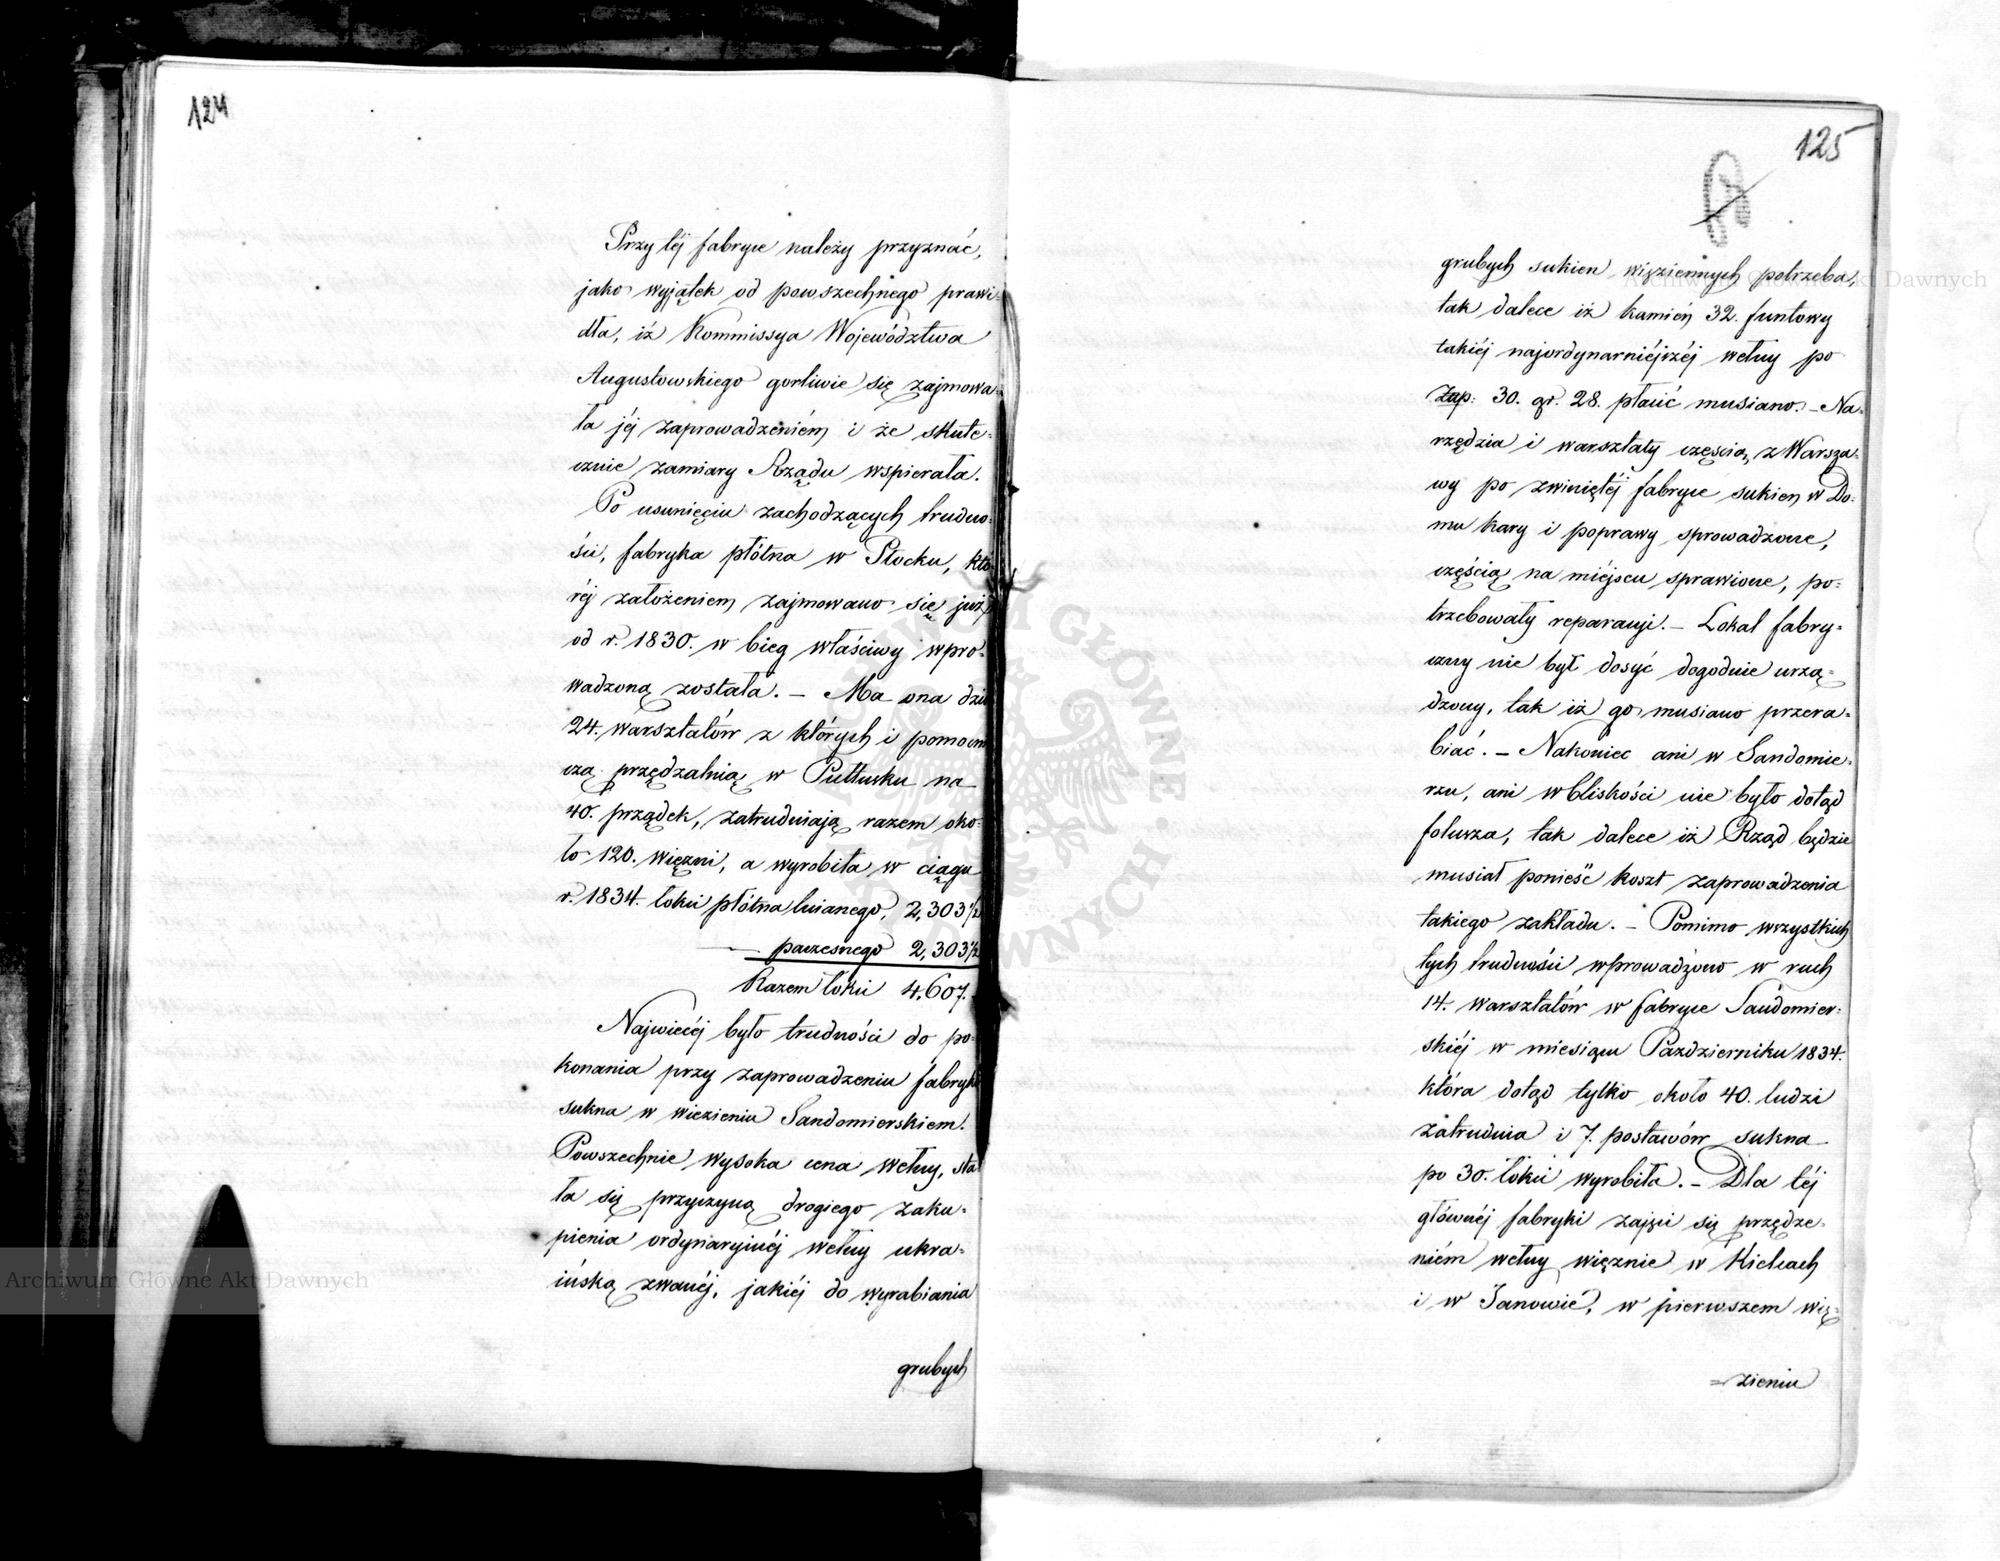 124
Przy téj fabryce należy przyznać,
jako wyjątek od powszechnego prawi-
dła, iż Kommissya Województwa
Augustowskiego gorliwie się zajmowa-
ła jéj zaprowadzeniém i że skute-
cznie zamiary Rządu wspierała.
Po usunięciu zachodzących trudno-
ści, fabryka płótna w Płocku, któ
réj założeniem zajmowano się już
od r. 1830. w bieg właściwy wpro-
wadzoną została. – Ma ona dziś
24. warsztatów z których i pomocni
czą przędzalnią w Pułtusku na
40. prządek, zatrudniają razem oko-
ło 120. więzni, a wyrobiła w ciągu
r. 1834. łokci płótna lnianego, 2,303½
— paczesnego 2,303½
Razem łokci 4,607.
Najwiecéj było trudności do po-
konania przy zaprowadzeniu fabryki
sukna w wiezieniu Sandomierskiem.
Powszechnie wysoka cena wełny, sta
ła się przyczyną drogiego zaku-
pienia ordynaryjnéj wełny ukra-
ińską zwanéj, jakiéj do wyrabiania
grubych
125
grubych sukien więziennych potrzeba,
tak dalece iż kamień 32. funtowy
takiéj najordynarniéjszéj wełny po
złp: 30. gr. 28. płacić musiano. – Na-
rzędzia i warsztaty częscią z Warsza-
wy po zwiniętéj fabryce sukien w Do-
mu kary i poprawy sprowadzone,
częścią na miéjscu sprawione, po-
trzebowały reparacyi. – Lokal fabry-
czny nie był dosyć dogodnie urzą-
dzony, tak iż go musiano przera-
biać. – Nakoniec ani w Sandomie-
rzu, ani w bliskości nie było dotąd
folusza, tak dalece iż Rząd będzie
musiał ponieść koszt zaprowadzenia
takiego zakładu. – Pomimo wszystkich
tych trudności wprowadzono w ruch
14. warsztatów w fabryce Sandomier-
skiéj w miesiącu Pazdzierniku 1834.
która dotąd tylko około 40. ludzi
zatrudnia i 7. postawów sukna
po 30. łokci wyrobiła. – Dla téj
głównéj fabryki zajęci się przędze-
niém wełny więznie w Kielcach
i w Janowie, w pierwszem wię-
=zieniu
Archiwum Główne Akt Dawnych
Archiwum Główne Akt Dawnych